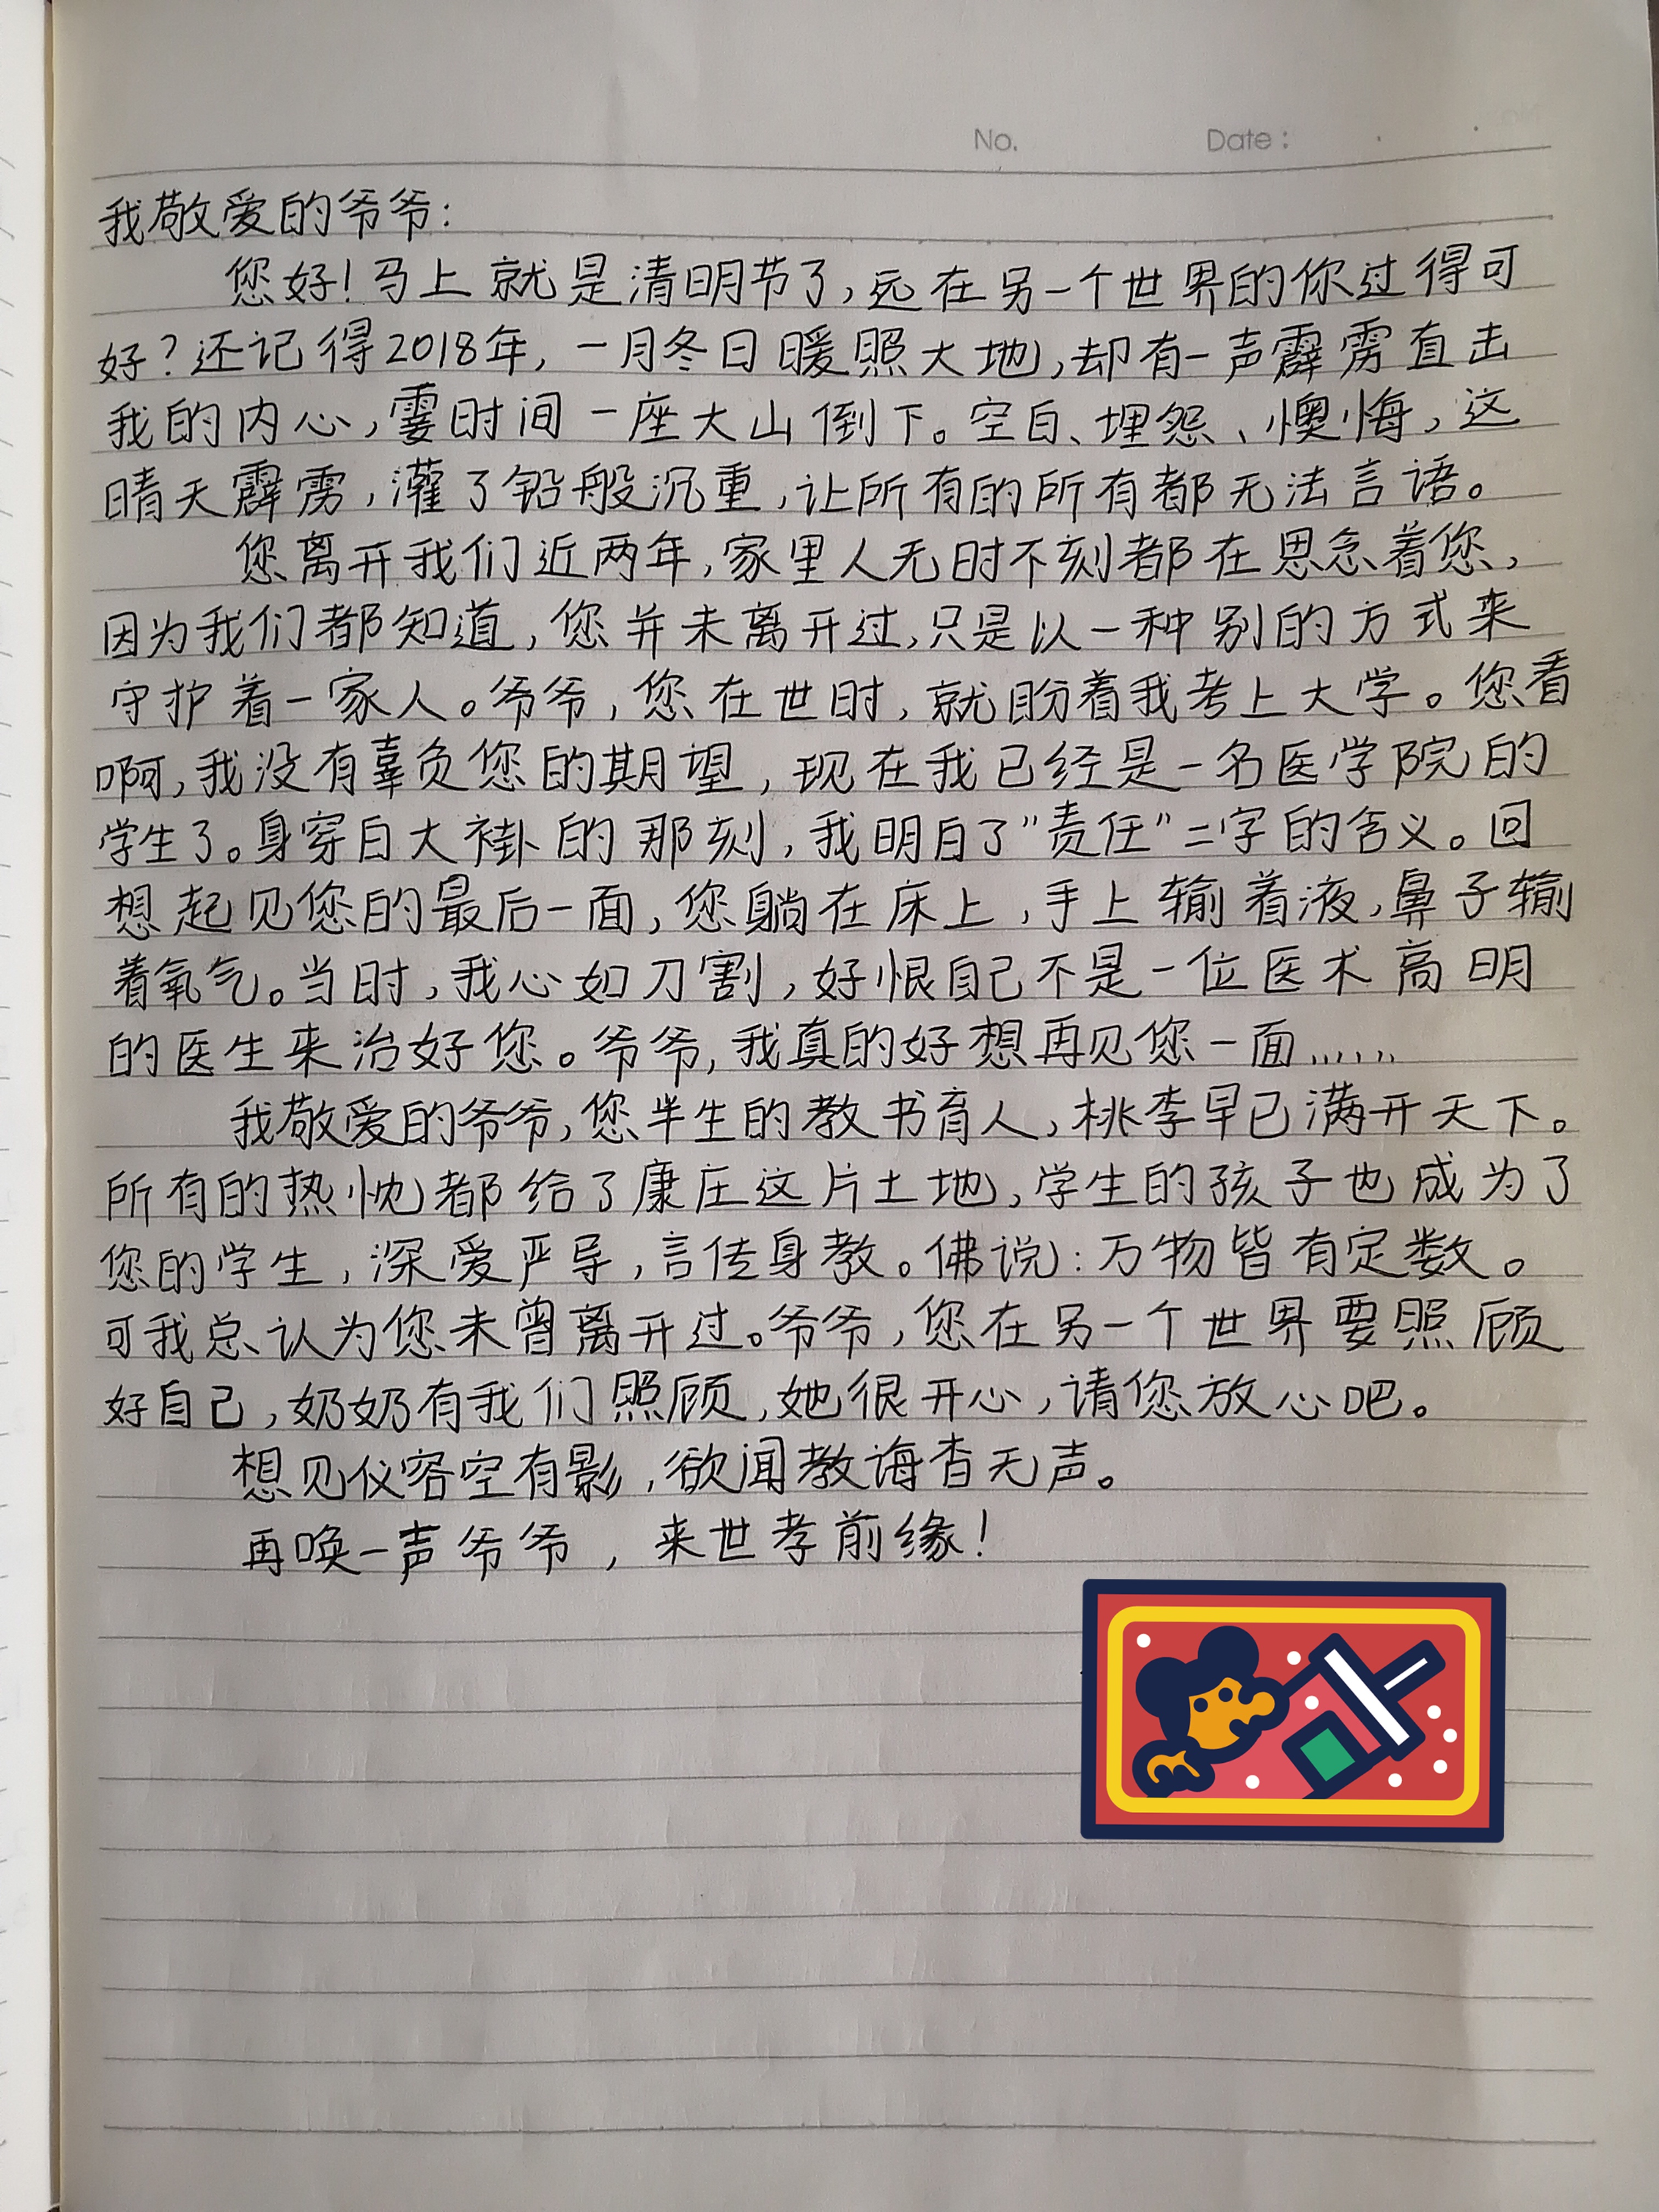 No. Date:
我敬爱的爷爷:
您好!马上就是清明节了,远在另一个世界的你过得可
好?还记得2018年,一月冬日暖照大地,却有一声霹雳直击
我的内心,霎时间一座大山倒下。空白、埋怨、懊悔,这
晴天霹雳,灌了铅般沉重,让所有的所有都无法言语。
您离开我们近两年,家里人无时不刻都在思念着您,
因为我们都知道,您并未离开过,只是以一种别的方式来
守护着一家人。爷爷,您在世时,就盼着我考上大学。您看
啊,我没有辜负您的期望,现在我已经是一名医学院的
学生了。身穿白大褂的那刻,我明白了"责任"二字的含义。回
想起见您的最后一面,您躺在床上,手上输着液,鼻子输
着氧气。当时,我心如刀割,好恨自己不是一位医术高明
的医生来治好您。爷爷,我真的好想再见您一面......
我敬爱的爷爷,您半生的教书育人,桃李早已满开天下。
所有的热忱都给了康庄这片土地,学生的孩子也成为了
您的学生,深爱严导,言传身教。佛说:万物皆有定数。
可我总认为您未曾离开过。爷爷,您在另一个世界要照顾
好自己,奶奶有我们照顾,她很开心,请您放心吧。
想见仪容空有影,欲闻教诲杳无声。
再唤一声爷爷,来世孝前缘!